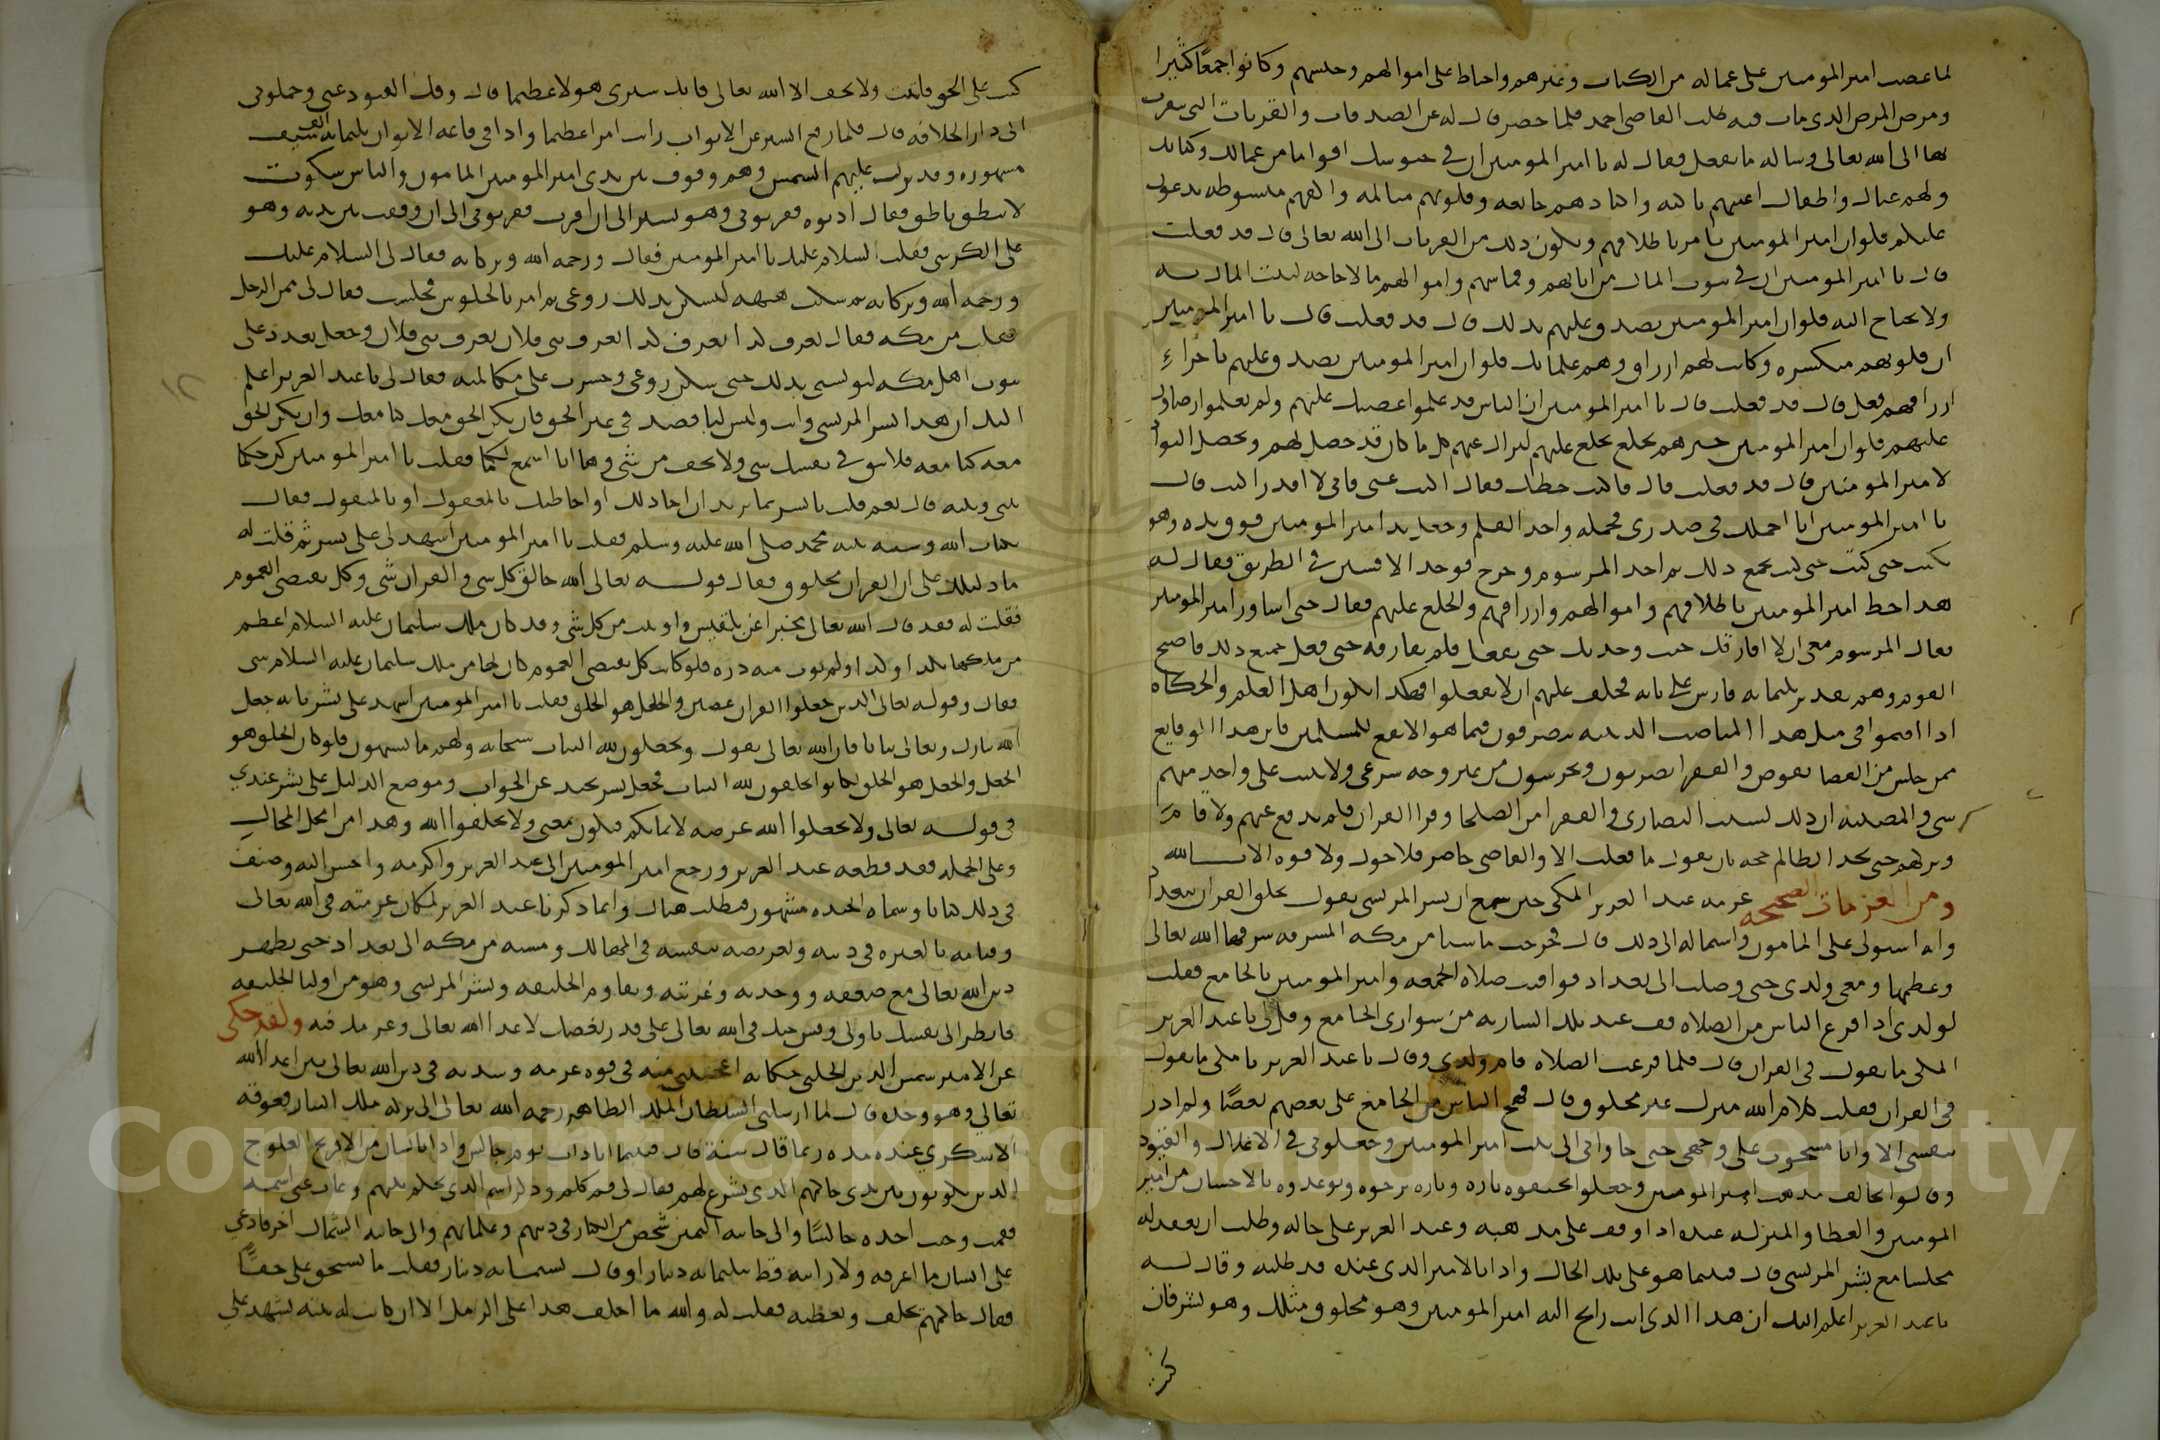 لما غضب امير المومنين على عماله من الكتاب وغيرهم واحاط على اموالهم وحبسهم وكانوا جمعًا كثيرا
ومرض المرض الذى مات فيه طلب القاضى احمد فلما حضر قال له عن الصدقات والقربات التى يتقرب
بها الى الله تعالى وساله ما يفعل فقال له يا امير المومنين ان فى حبوسك اقواما من عمالك وكتابك
ولهم عيال واطفال اعينهم باكيه واكبادهم جايعه وقلوبهم متالمه والفهم مبسوطه يدعون
عليكم فلو ان امير المومنين يامر باطلاقهم ويكون ذلك من القربات الى الله تعالى قال قد فعلت
قال يا امير المومنين ان فى بيوت المال من اثاثهم وقماشهم واموالهم ما لا حاجه لبيت المال به
ولا يحتاج اليه فلو ان امير المومنين يصدق عليهم بذلك قال قد فعلت قال يا امير المومنين
ان قلوبهم منكسره وكانت لهم ارزاق وهم غلمانك فلو ان امير المومنين يصدق عليهم باجراء
ارزاقهم فعل قال قد فعلت قال يا امير المومنين ان الناس قد علموا غضبك عليهم ولم يعلموا رضاك
عليهم فلو ان امير المومنين جبرهم بخلع يخلع عليهم ليزال عنهم كل ما كان قد حصل لهم ويحصل الثواب
لامير المومنين قال قد فعلت قال فاكتب خطك فقال اكتب عنى فانى لا اقدر اكتب قال
يا امير المومنين انا احملك فى صدرى فحمله واخذ القلم وجعل يد امير المومنين فوق يده وهو
يكتب حتى كتب حتى كتب بجميع ذلك ثم اخذ المرسوم وخرج فوجد الافشين فى الطريق فقال له
هذا خط امير المومنين باطلاقهم واموالهم وارزاقهم والخلع عليهم فقال حتى اشاور امير المومنين
فقال المرسوم معى ان لا افارقك حيث وجدتك حتى يفعل فلم يفارقه حتى فعل جميع ذلك فاصبح
القوم وهم يقدير بثلثمايه فارس على بابه فحلف عليهم ان لا يفعلوا فهكذا يكون اهل العلم والحكام
اذا اقيموا فى مثل هذا المناصب الدينيه يتصرفون فيما هو الانفع للمسلمين فاين هذا الوقايع
ممن جلس من القضا بعوض والفقرا يضربون ويحرسون من غير وجه شرعى ولا يثبت على واحد منهم
شى والمصيبه ان ذلك لسبب النصارى والفقرا من الصلحا وقرا القران فلم يدفع عنهم ولا قام
وبرلهم حتى يجد الظالم حجه بان يقول ما فعلت الا والقاضى حاضر فلا حول ولا قوه الا بالله
ومن العزمات الصحيحه عزمه عبد العزيز المكى حين سمع ان بشر المريسى يقول بخلق القران ببغداد
وانه استولى على المامون واستماله الى ذلك قال فخرجت ماشيا من مكه المشرفه شرفها الله تعالى
وعظمها ومعى ولدى حتى وصلت الى بغداد فوافيت صلاه الجمعه وامير المومنين بالجامع فقلت
لولدى اذا فرغ الناس من الصلاه فقف عند تلك الساريه من سوارى الجامع وقل لى يا عبد العزيز
المكى ما يقول فى القران قال فلما فرغت الصلاه قام ولدى وقال يا عبد العزيز يا مكى ما تقول
فى القران فقلت كلام الله منزل غير مخلوق قال فهج الناس من الجامع على بعضهم بعضًا ولم ادر
بنفسى الا وانا مسحوب على وجهى حتى جاوا فى الى بيت امير المومنين وجعلونى فى الاغلال والقيود
وقالوا خالف مذهب امير المومنين وجعلوا يخيفوه تاره وتاره يرجوه ويوعدوه بالاحسان من امير
المومنين والعطا والمنزله عنده اذا وقف على مذهبه وعبد العزيز على حاله وطلب ان يعقد له
مجلسا مع بشر المريسى قال فبينما هو على تلك الحال واذا بالامير الذى عنده قد طلبه وقال له
يا عبد العزيز اعلم انك ان هذا الذى انت رايح اليه امير المومنين وهو مخلوق مثلك وهو بشر فان
كنت
كنت على الحق فاثبت ولا تخف الا الله تعالى فانك سترى هولا عظيما قال وفك القيود عنى وحملونى
الى دار الخلافه قال فلما رفع الستر عن الابواب رايت امرا عظيما واذا فى قاعه الايوان ثلثمايه الف سيف
مشهوره وقد نزلت عليهم الشمس وهم وقوف بين يدى امير المومنين المامون والناس سكوت
لا ينطق ناطق فقال ادنوه فقربونى وهو يشير الى ان اقرب فقربونى الى ان وقفت بين يديه وهو
على الكرسى فقلت السلام عليك يا امير المومنين فقال ورحمه الله وبركاته فقال لى السلام عليك
ورحمه الله وبركاته ثم سكت هنيهه ليسكن بذلك روعى ثم امر بالجلوس فجلست فقال لى ممن الرجل
فقلت من مكه فقال تعرف كذا اتعرف كذا تعرف بنى فلان تعرف بنى فلان وجعل يعدد على
بيوت اهل مكه ليونسنى بذلك حتى سكن روعى وجسرت على مكالمته فقال لى يا عبد العزيز اعلم
انك ان هذا بشر المريسى وانت وليس لنا قصد فى غير الحق فان يكن الحق معك كنا معك وان يكن الحق
معه كنا معه فلا يبقى فى نفسك شى ولا تخف من شى وها انا اسمع لكما فقلت يا امير المومنين كن حكما
بينى وبينه قال نعم قلت يا بشر بما تريد ان اجادلك او اخاطبك بالمعقول او بالمنقول فقال
بكتاب الله وسنه نبيه محمد صلى الله عليه وسلم فقلت يا امير المومنين اشهد لى على بشر ثم قلت له
ما دليلك على ان القران مخلوق فقال قوله تعالى الله خالق كل شى والقران شى وكل يقتضى العموم
فقلت له فقد قال الله تعالى يخبرا عن بلقيس واوتيت من كل شى وقد كان ملك سليمان عليه السلام اعظم
من ملكها بلدا ولدا ولم توت منه ذره فلو كانت كل يقتضى العموم كان لها من ملك سليمان عليه السلام شى
فقال وقوله تعالى الذين جعلوا القران عضين والجعل هو الخلق فقلت يا امير المومنين اشهد على بشر بانه جعل
الله تبارك وتعالى بناتا فان الله تعالى يقول ويجعلون لله البنات سبحانه ولهم ما يشتهون فلو كان الخلق هو
الجعل والجعل هو الخلق لكانوا يخلقون لله البنات فجعل بشر يحيد عن الجواب وموضع الدليل على بشر عندى
فى قوله تعالى ولا تجعلوا الله عرضه لايمانكم فيكون معنى ولا تخلقوا الله وهذا من امحل المحال
وعلى الجمله فقد قطعه عبد العزيز ورجع امير المومنين الى عبد العزيز واكرمه واحسن اليه وصنف
فى ذلك كتابا وسماه الحيده مشهور فيطلب هناك وانما ذكرنا عبد العزيز لمكان عزمته فى الله تعالى
وقيامه بالغيره فى دينه وتعريضه بنفسه فى المهالك ومشيه من مكه الى بغداد حتى يظهر
دين الله تعالى مع ضعفه ووحدته وغربته ويقاوم الخليفه وبشر المريسى وهو من اوليا الخليفه
فانظر الى نفسك يا ولى وقس حبك فى الله تعالى على قدر بغضك لاعدا الله تعالى وعزمك فيه ولقد حكى
عن الامير شمس الدين الحلبى حكايه اعجبتنى منه فى قوه عزمه وشدته فى دين الله تعالى بين اعدا الله
تعالى وهو وحده قال لما ارسلنى السلطان الملك الظاهر رحمه الله تعالى الى بركه ملك التتار فعوقه
الاسكرى عنده مده ربما قال سنة قال فبينما انا ذات يوم جالس واذا بانسان من الافرنج العلوج
الذين يكونون بين يدى حاكمهم الذى يشرع لهم فقال لى قم كلم وذكر اسم الذى يحكم بينهم وغاب عنى اسمه
فقمت وجيت اجده جالسًا والى جانبه اليمين شخص من الكبار فى دينهم وعلمايهم والى جانبه الشمال اخر فادعى
على انسان ما اعرفه ولا رايته قط بثلثمايه دينار او قال بتسمايه دينار فقلت ما يستحق على حقًا
فقال حاكمهم تحلف وتعظيه فقلت له والله ما احلف هذا على الرمل الا ان كانت له بينه تشهد على
Copyright © King Saud University